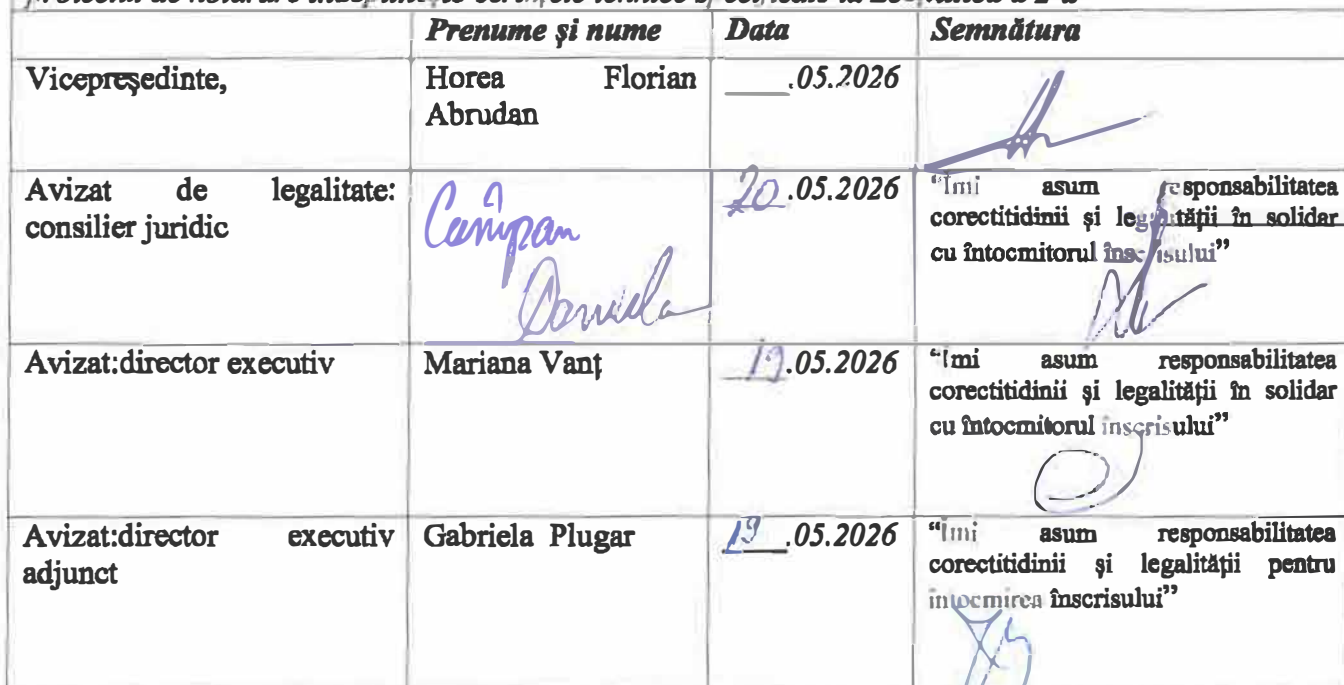 Prenume și nume Data Semnătura
Vicepreședinte, Horea Florian ____.05.2026
Abrudan
Avizat de legalitate: Câmpan 20.05.2026 “Îmi asum responsabilitatea
consilier juridic corectitidinii și legalității în solidar
cu întocmitorul înscrisului”
Daniela
Avizat:director executiv Mariana Vanț 19.05.2026 “Îmi asum responsabilitatea
corectitidinii și legalității în solidar
cu întocmitorul înscrisului”
Avizat:director executiv Gabriela Plugar 19.05.2026 “Îmi asum responsabilitatea
adjunct corectitidinii și legalității pentru
întocmirea înscrisului”